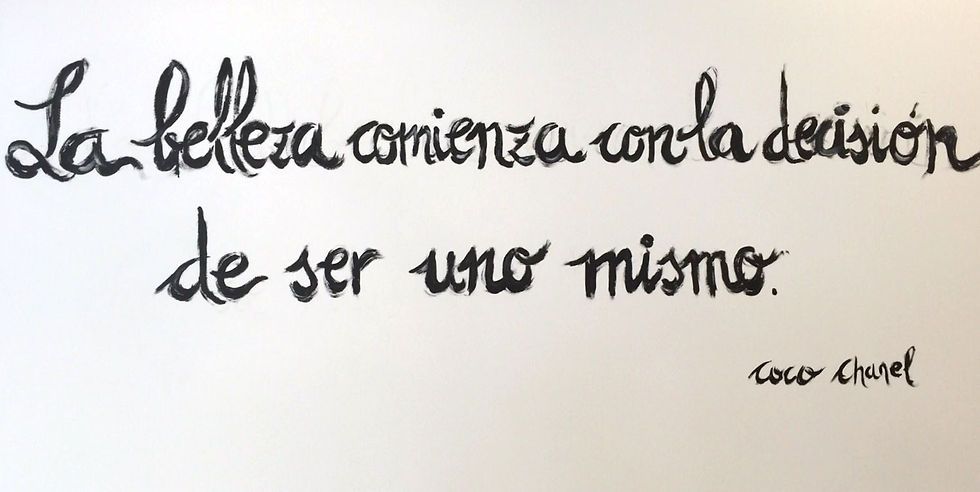 La belleza comienza con la decisión
de ser uno mismo.
coco chanel